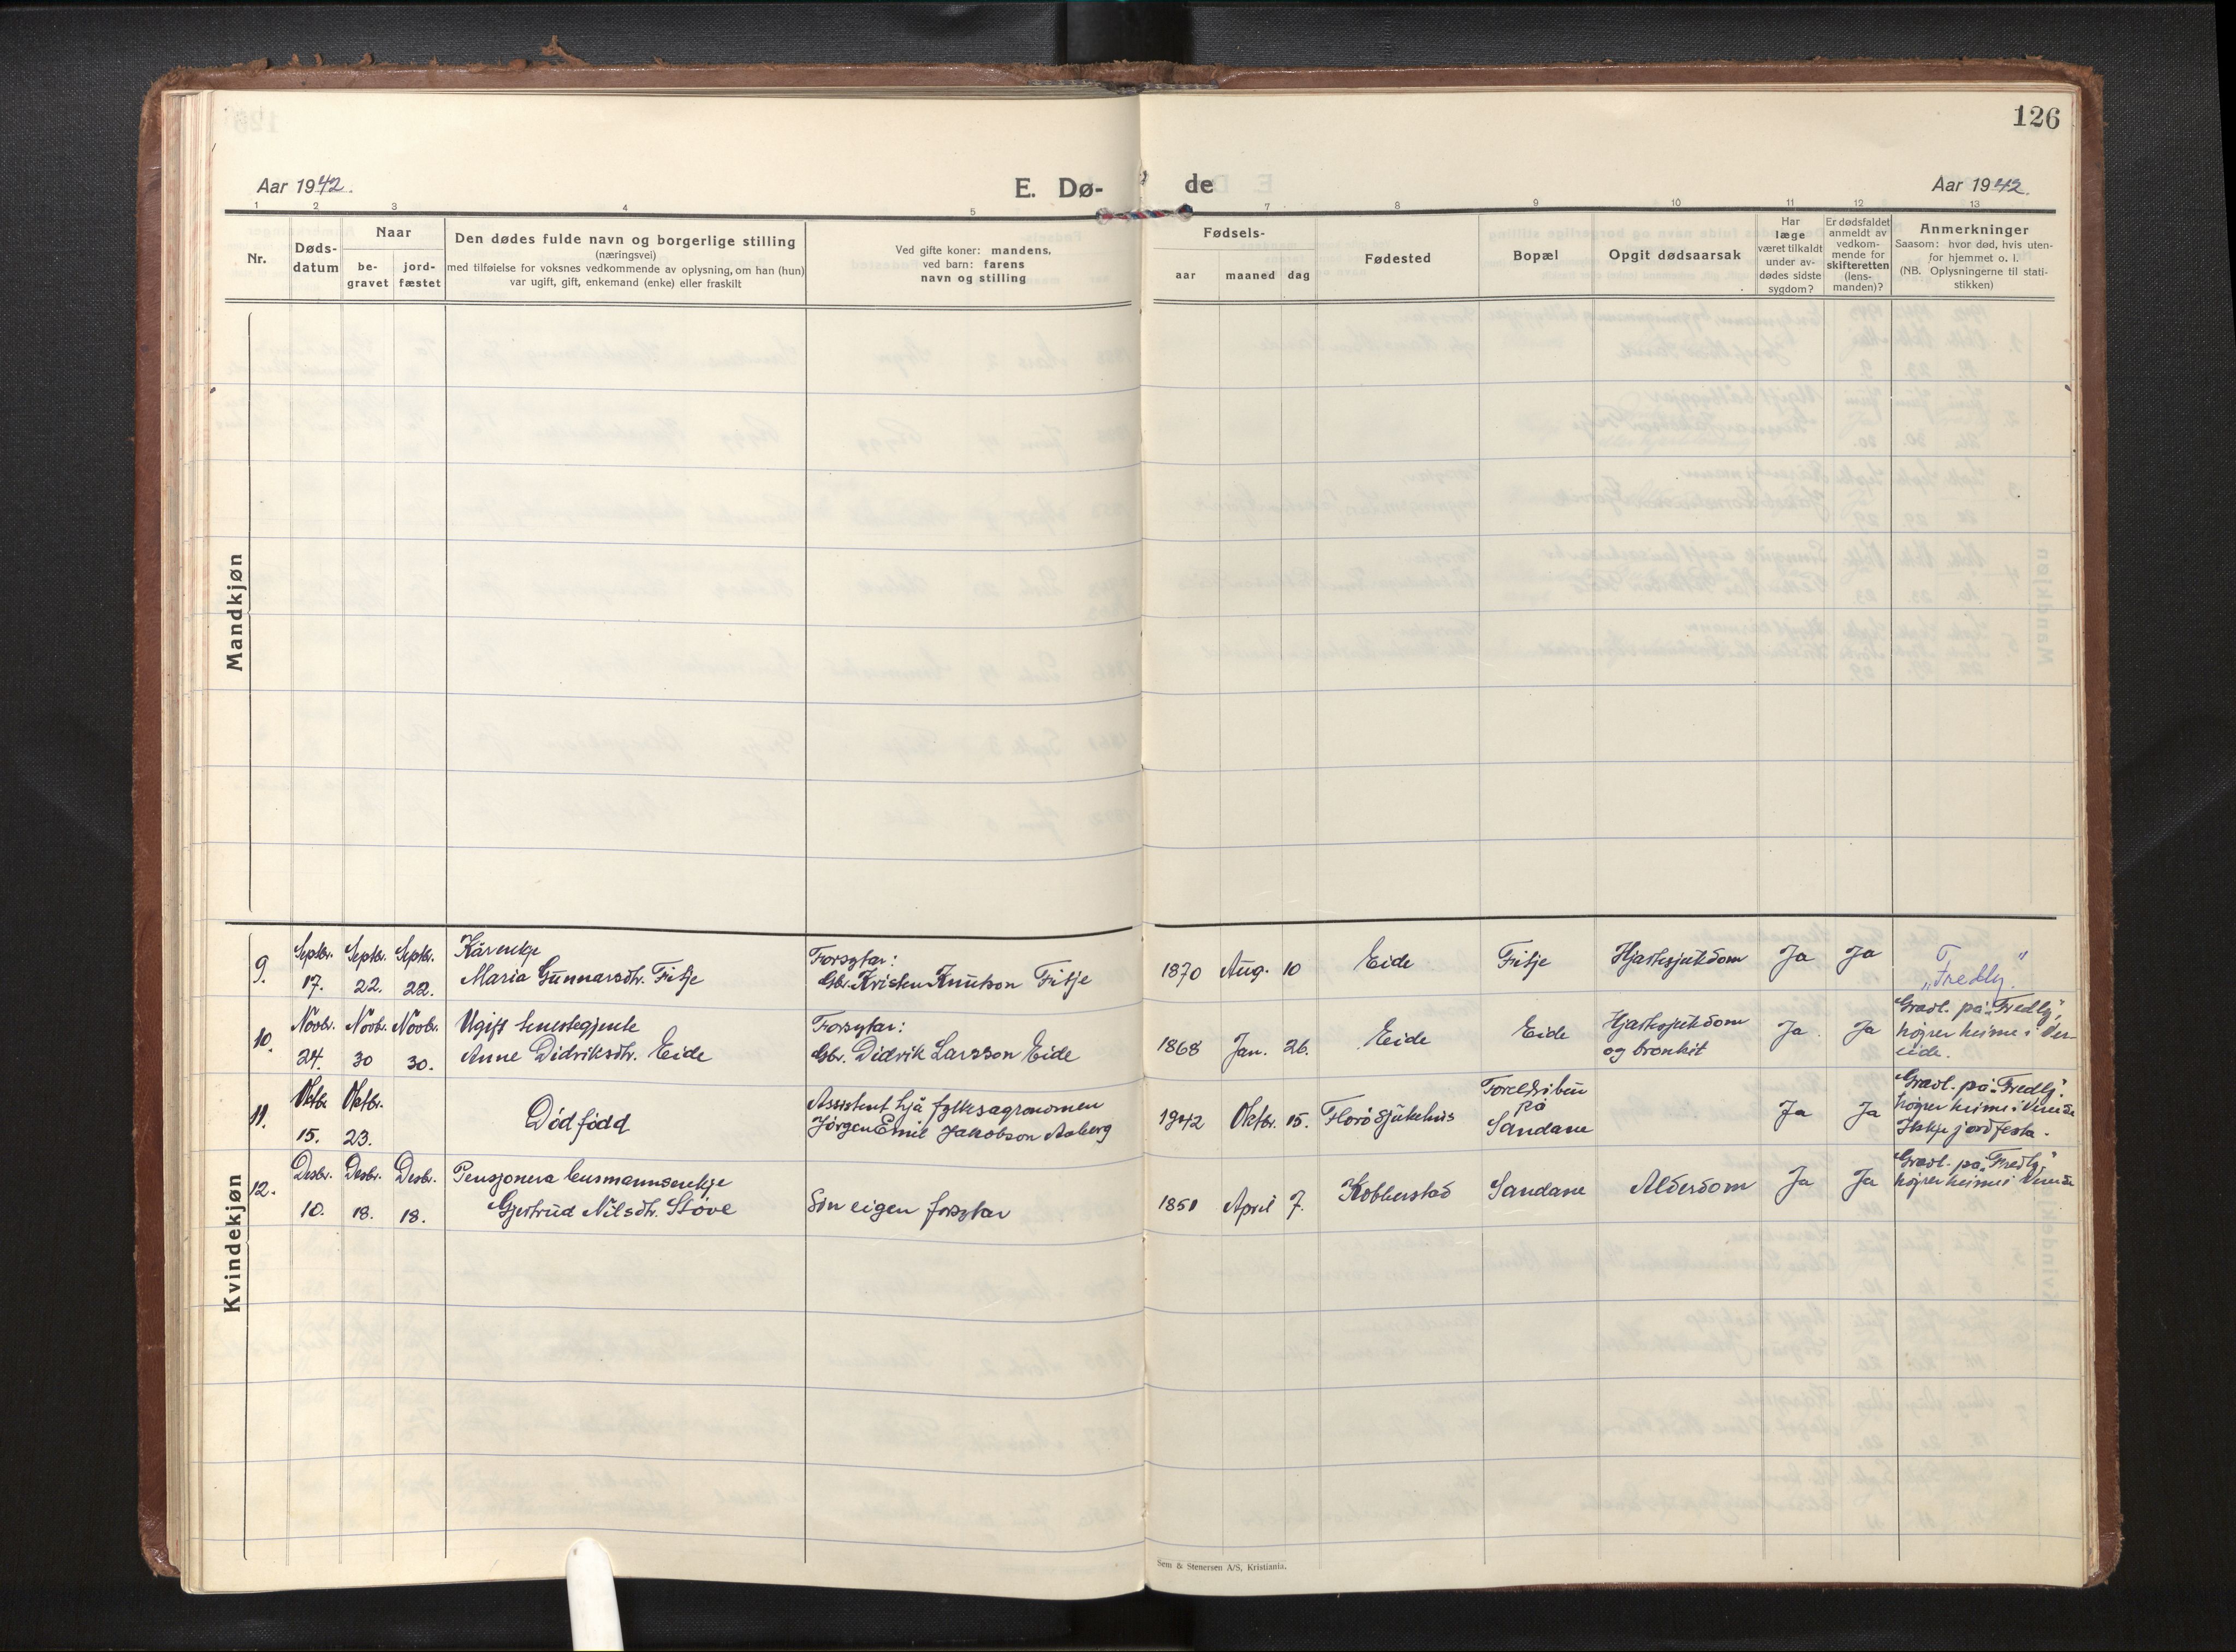 126
Aar 1942.
E. Dø-
de
Aar 1942.
1 2 3 4 5 7 8 9 10 11 12 13
Nr.
Døds-
datum
Naar
be-
gravet
jord-
fæstet
Den dødes fulde navn og borgerlige stilling
(næringsvei)
med tilføielse for voksnes vedkommende av oplysning, om han (hun)
var ugift, gift, enkemand (enke) eller fraskilt
Ved gifte koner: mandens,
ved barn: farens
navn og stilling
Fødsels-
aar maaned dag
Fødested
Bopæl
Opgit dødsaarsak
Har
læge
været tilkaldt
under av-
dødes sidste
sygdom?
Er dødsfaldet
anmeldt av
vedkom-
mende for
skifteretten
(lens-
manden)?
Anmerkninger
Saasom: hvor død, hvis uten-
for hjemmet o. l.
(NB. Oplysningerne til stati-
stikken)
Mandkjøn
Kvindekjøn
9.
Septbr.
17.
Septbr.
22.
Septbr.
22.
Kårenkje
Maria Gunnarsdtr. Fitje
Forsytar:
Gbr. Kristen Knutson Fitje
1870 Aug. 10
Eide
Fitje
Hjartesjukdom
Ja
Ja
"Fredly."
10.
Novbr.
24.
Novbr.
30
Novbr.
30.
Ugift tenestegjente
Anne Didriksdtr. Eide
Forsytar:
Gbr. Didrik Larsson Eide
1868 Jan. 26.
Eide
Eide
Hjartesjukdom
og bronkit
Ja.
Ja
Gravl. på "Fredly",
høyrer heime i Ver-
eide.
11.
Oktbr.
15.
Oktbr.
23.
Død född
Assistent hjå fylkesagronomen
Jørgen Emil Jakobson Aaberg
1942 Oktbr. 15.
Florö sjukehus
Foreldri bur
på
Sandane
Ja
Ja
Gravl. på "Fredly".
høyrer heime i Vereide
Ikkje jordfesta.
12.
Desbr.
10.
Desbr.
18.
Desbr.
18.
Pensjonera lensmannsenkje
Gjertrud Nilsdtr. Støve
Sin eigen forsytar
1851 April 7.
Kobberstad
Sandane
Alderdom
Ja
Ja
Gravl. på "Fredly"
høyrer heime i Vereide
Sem & Stenersen A/S, Kristiania.